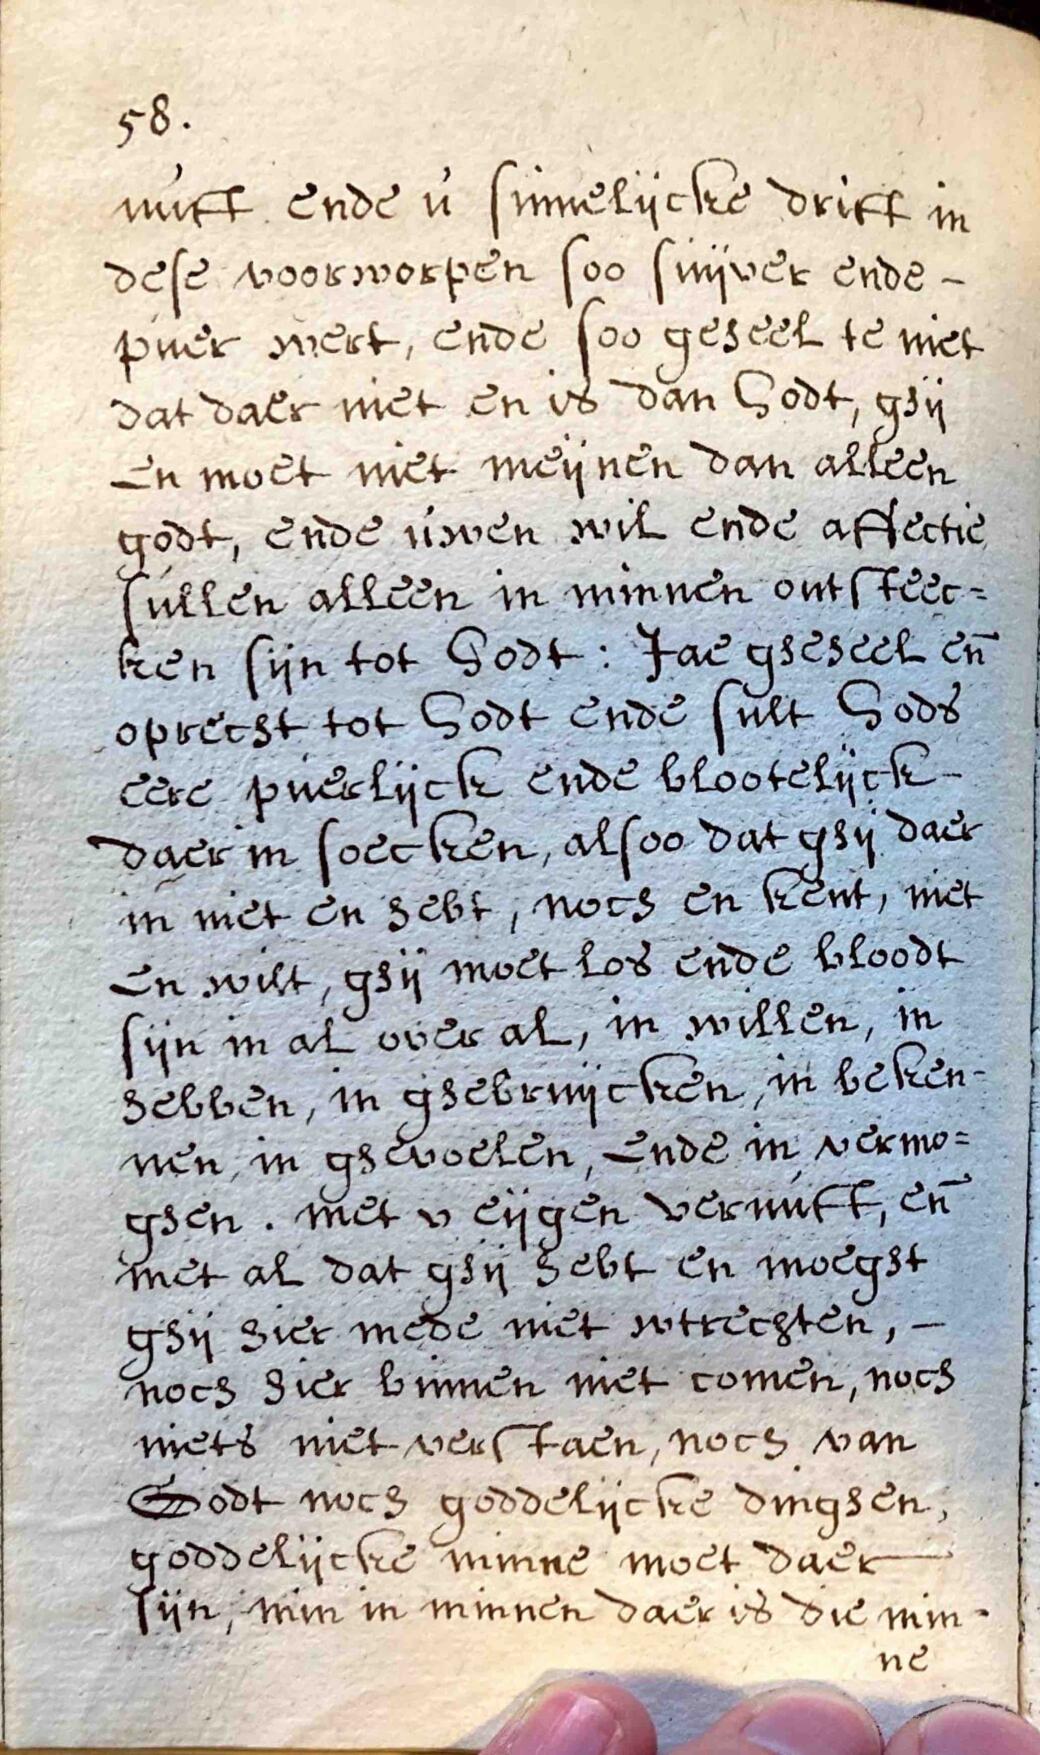 58.
nuft ende ú sinnelijcke drift in
dese voorworpen soo suijver ende –
puer wert, ende soo geheel te niet
dat daer niet en is dan Godt, ghij
En moet niet meijnen dan alleen
godt, ende úwen wil ende affectie
sullen alleen in minnen ontsteec=
ken sijn tot Godt: Jae gheheel en̄
oprecht tot Godt ende sult Gods
eere puerlijck ende blootelijck –
daer in soecken, alsoo dat ghij daer
in niet en hebt, noch en kent, niet
En wilt, ghij moet los ende bloodt
sijn in al over al, in willen, in
hebben, in ghebruijcken, in beken-
nen, in ghevoelen, Ende in vermo=
ghen. met v eijgen vernuft, en̄
met al dat ghij hebt en moeght
ghij hier mede niet wtrechten, –
noch hier binnen niet comen, noch
niets niet verstaen, noch van
Godt noch goddelijcke dinghen,
goddelijcke minne moet daer
sijn, min in minnen daer is die min-
ne